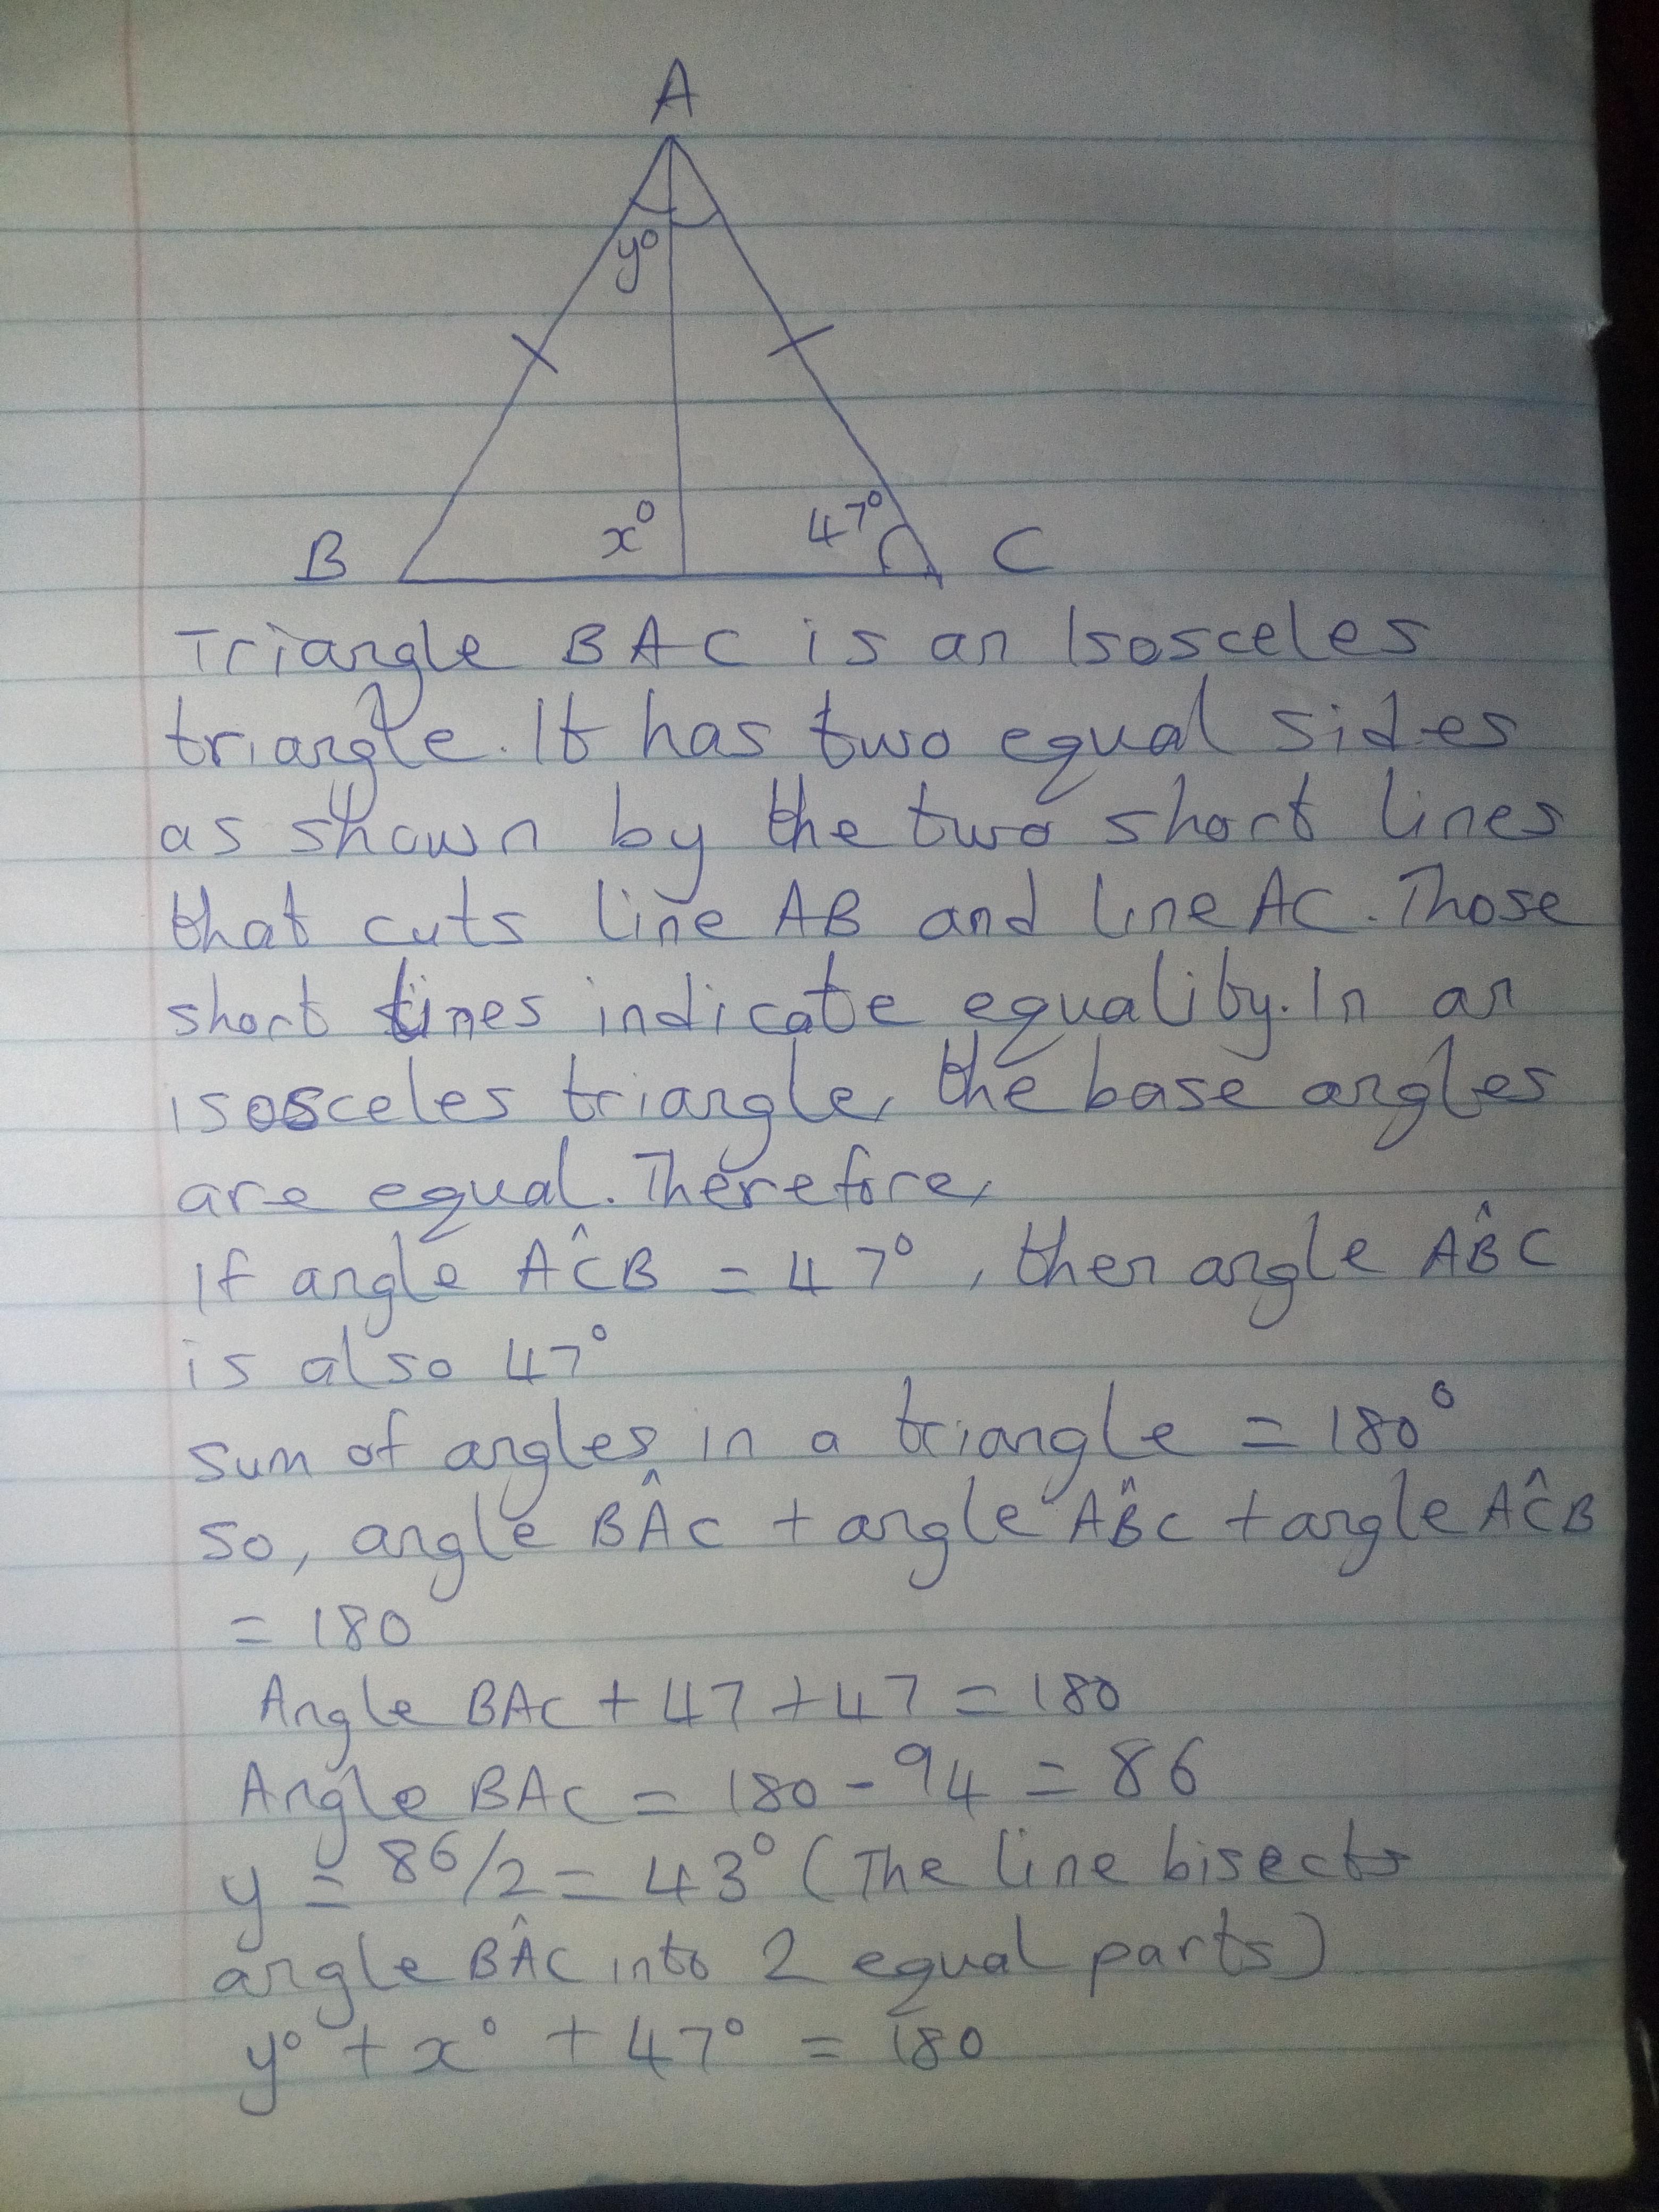 A
y°
x° 47°
B C
Triangle BAC is an Isosceles
triangle. It has two equal sides
as shown by the two short lines
that cuts line AB and line AC. Those
short lines indicate equality. In an
isosceles triangle, the base angles
are equal. Therefore,
If angle AĈB = 47°, then angle AB̂C
is also 47°
Sum of angles in a triangle = 180°
So, angle BÂC + angle AB̂C + angle AĈB
= 180
Angle BAC + 47 + 47 = 180
Angle BAC = 180 - 94 = 86
y = 86/2 = 43° (The line bisects
angle BÂC into 2 equal parts)
y° + x° + 47° = 180